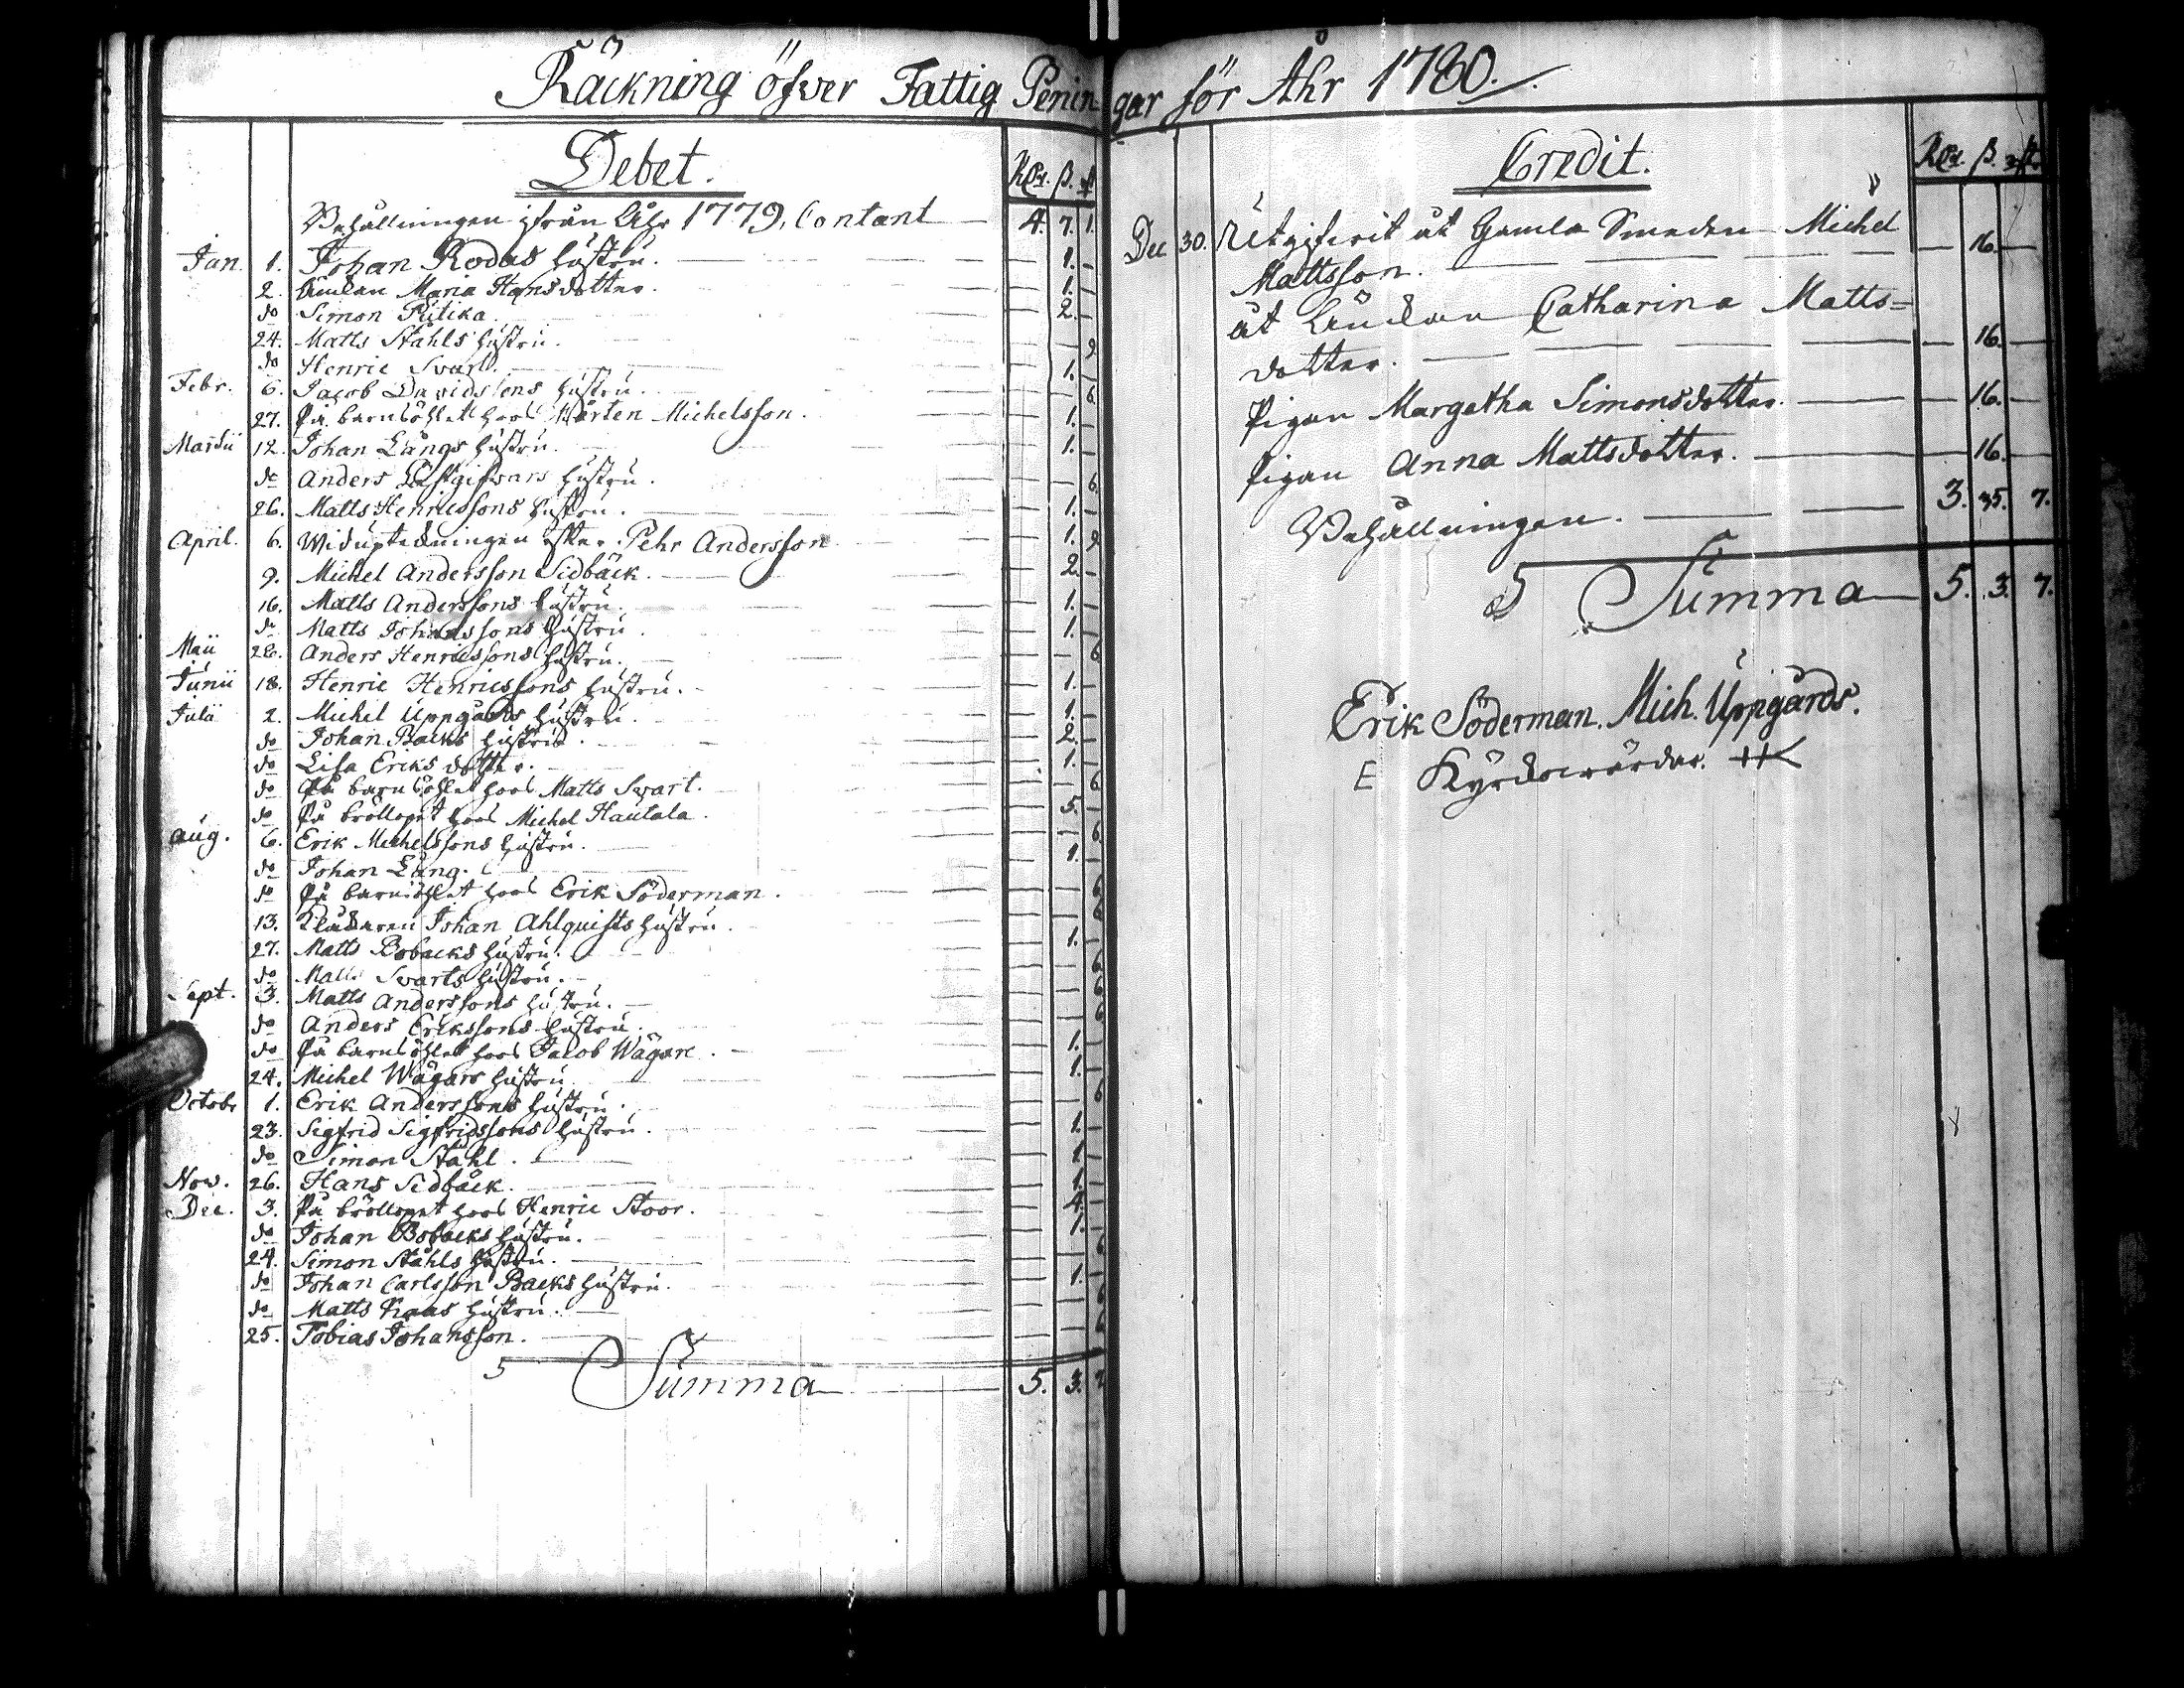 Räckning öfver Fattig Peningar för Åhr 1780.
Debet.
RDr. ß.
Behållningen ifrån Åhr 1779, Contant 4. 7. 1.
Jan. 1. Johan Rodas hustru. 1.
2. Änckan Maria Hansdotter. 1.
do Simon Pütika. 2.
24. Matts Ståhls hustru. 9.
do Henric Svart. 1.
Febr. 6. Jacob Davidssons hustru. 6.
27. På barnsöhlet hoos Mårten Michelsson. 1.
Martii 12. Johan Långs hustru. 1.
do Anders Gästgifvars hustru. 6.
26. Matts Henricssons hustru. 1.
April. 6. Wid upteckningen efter Pehr Andersson 1. 9
9. Michel Andersson Sidbäck. 2.
16. Matts Anderssons hustru. 1.
do Matts Johanssons hustru. 1.
Maii 28. Anders Henricssons hustru. 6
Junii 18. Henric Henricssons hustru. 1.
Julii 2. Michel Uppgårds hustru. 1.
do Johan Backs hustru. 2.
do Lisa Eriksdotter. 1.
do På barnsöhlet hoos Matts Svart. 6
do På bröllopet hoos Michel Hautala. 5.
Aug. 6. Erik Michelssons hustru. 6.
do Johan Lång. 1.
do På barnsöhlet hoos Erik Söderman. 6
13. Klåckaren Johan Ahlquists hustru. 6
27. Matts Bobacks hustru. 1.
do Matts Svarts hustru. 6
Sept. 3. Matts Anderssons hustru. 6
do Anders Erikssons hustru. 6
do På barnsöhlet hoos Jacob Wägare. 1.
24. Michel Wägars hustru. 1.
Octobr 1. Erik Anderssons hustru. 6
23. Sigfrid Sigfridssons hustru. 1.
do Simon Ståhl. 1.
Nov. 26. Hans Sidbäck. 1.
Dec. 3. På bröllopet hoos Henric Stoor. 4.
do Johan Bobacks hustru. 1.
24. Simon Ståhls hustru. 6
do Johan Carlsson Backs hustru. 1.
do Matts Knaas hustru. 6
25. Tobias Johansson. 6
Summa 5. 3. 7
Credit.
RDr. ß.
Dec 30. Utgifvit åt Gamla Smeden Michel
Mattsson. 16.
åt Änckan Catharina Matts=
dotter. 16.
Pigan Margetha Simonsdotter. 16.
Pigan Anna Mattsdotter. 16.
Behållningen. 3. 35. 7.
Summa 5. 3. 7.
Erik Söderman. Mich. Uppgårds.
E Kyrckowärdar.